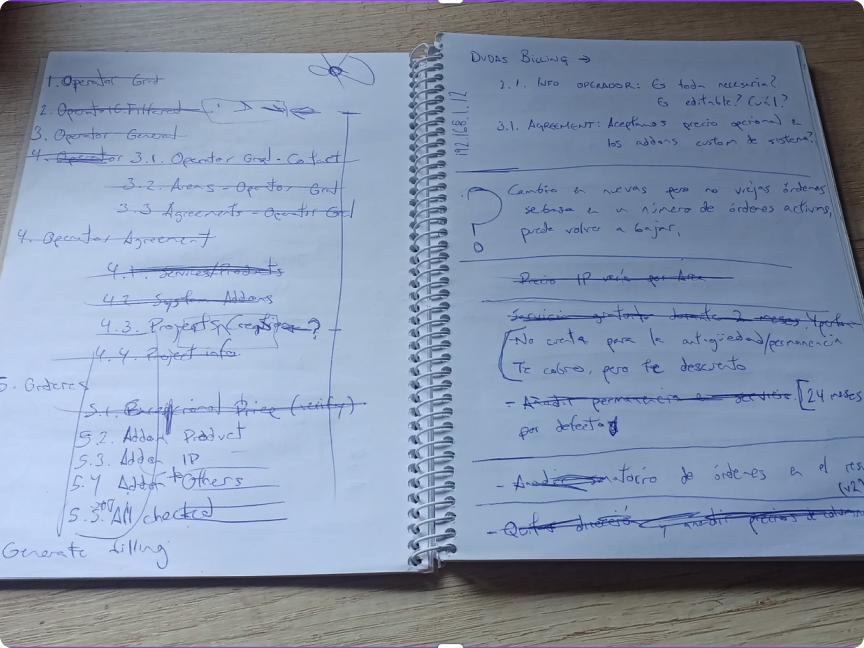 1. Operator Gral
2. Operator G Filtered
3. Operator General
4. Operator 3.1. Operator Gral - Contact
3.2. Areas - Operator Gral
3.3 Agreements - Operator Gral
4. Operator Agreement
4.1. Services/Products
4.2. System Addons
4.3. Projects ?
4.4. Project info
5. Orderes
5.1. Price (verify)
5.2. Addon Product
5.3. Addon IP
5.4 Addon Others
5.5. All checked
Generate billing
DUDAS BILLING →
2.1. INFO OPERADOR: Es toda necesaria?
Es editable? Cuál?
3.1. AGREEMENT: Aceptamos precio opcional a
los addons custom de sistema?
192.168.1.12
? Cambio en nuevas pero no viejas órdenes
se basa en un número de órdenes activas,
puede volver a bajar.
Precio IP varía por Area
Servicio gratuito durante 2 meses.
- No cuenta para la antigüedad/permanencia
Te cobro, pero te descuento
- Añadir permanencia en servicio. [24 meses
por defecto
- de órdenes en el
- Quitar y añadir precios de